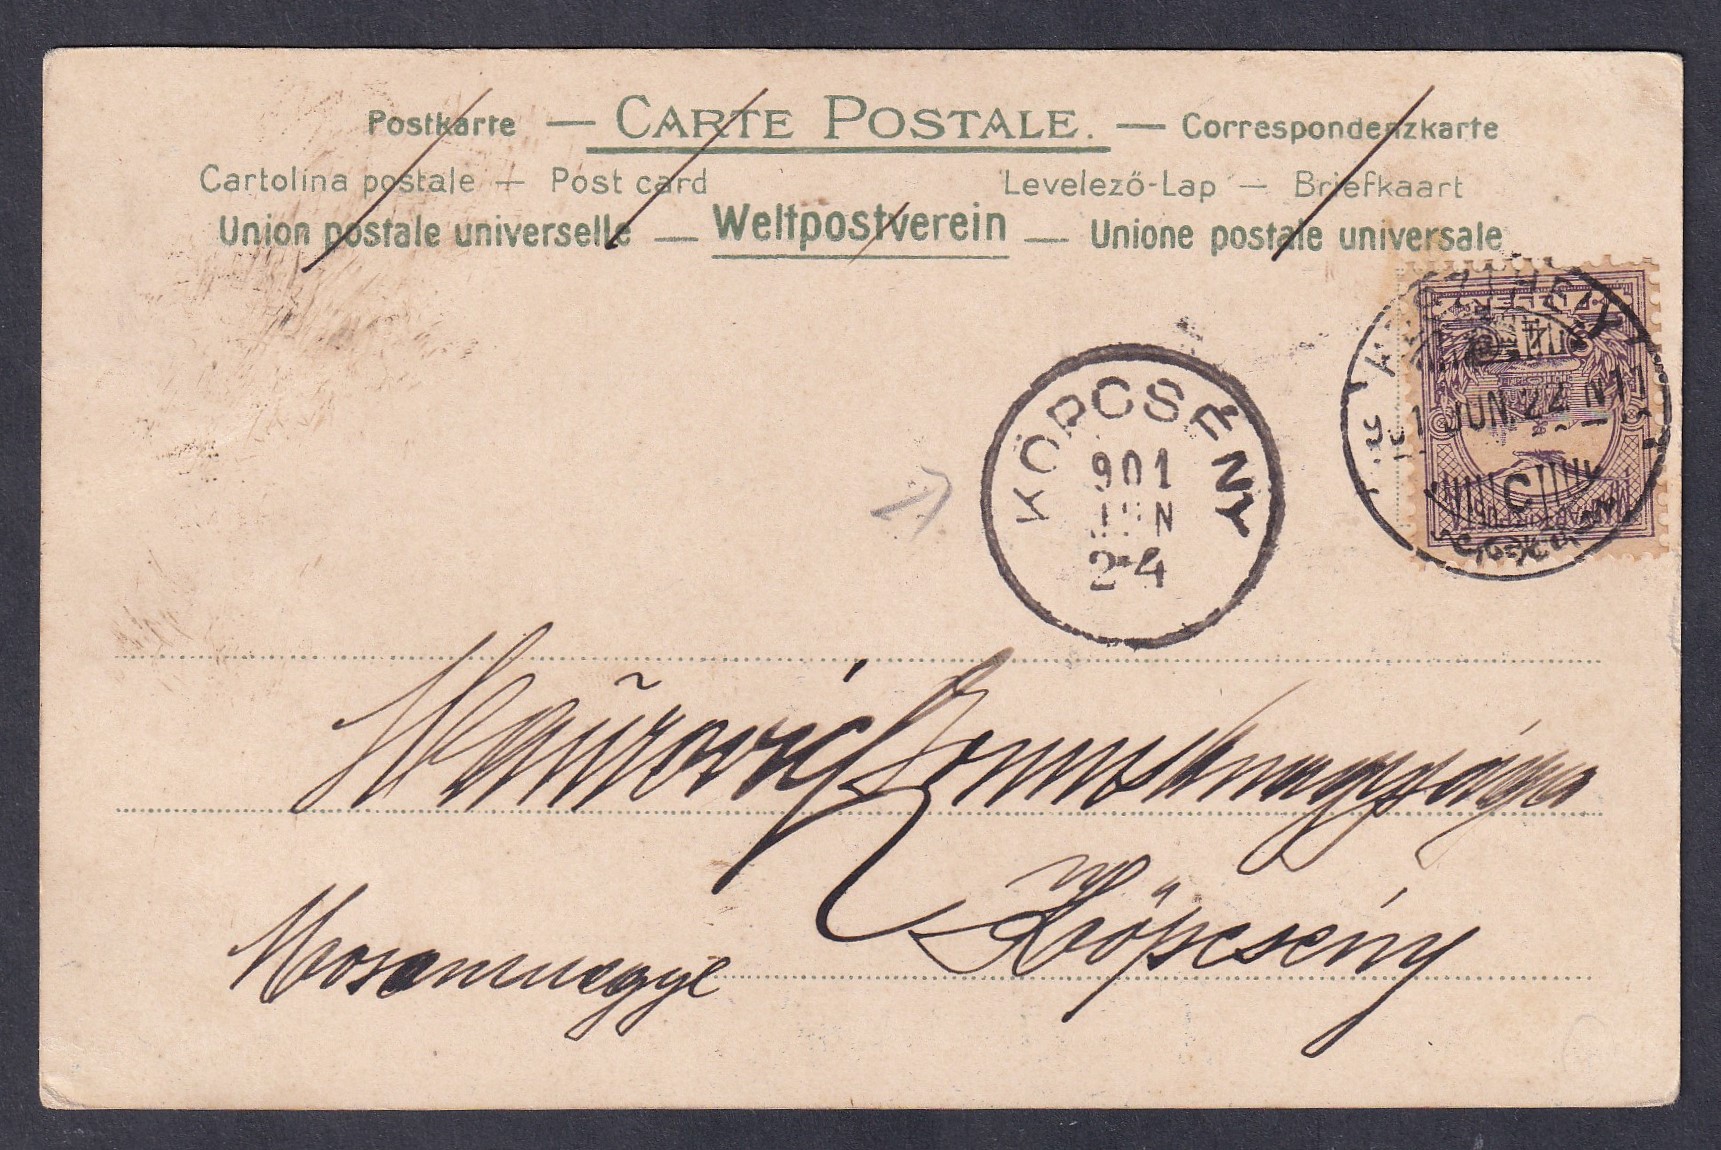 Postkarte — CARTE POSTALE. — Correspondenzkarte
Cartolina postale — Post card Levelező-Lap — Briefkaart
Union postale universelle — Weltpostverein — Unione postale universale
KÖPCSÉNY
901
JUN
24
901 JUN. 22 N 11
C
Köpcsény
Mosonmegye